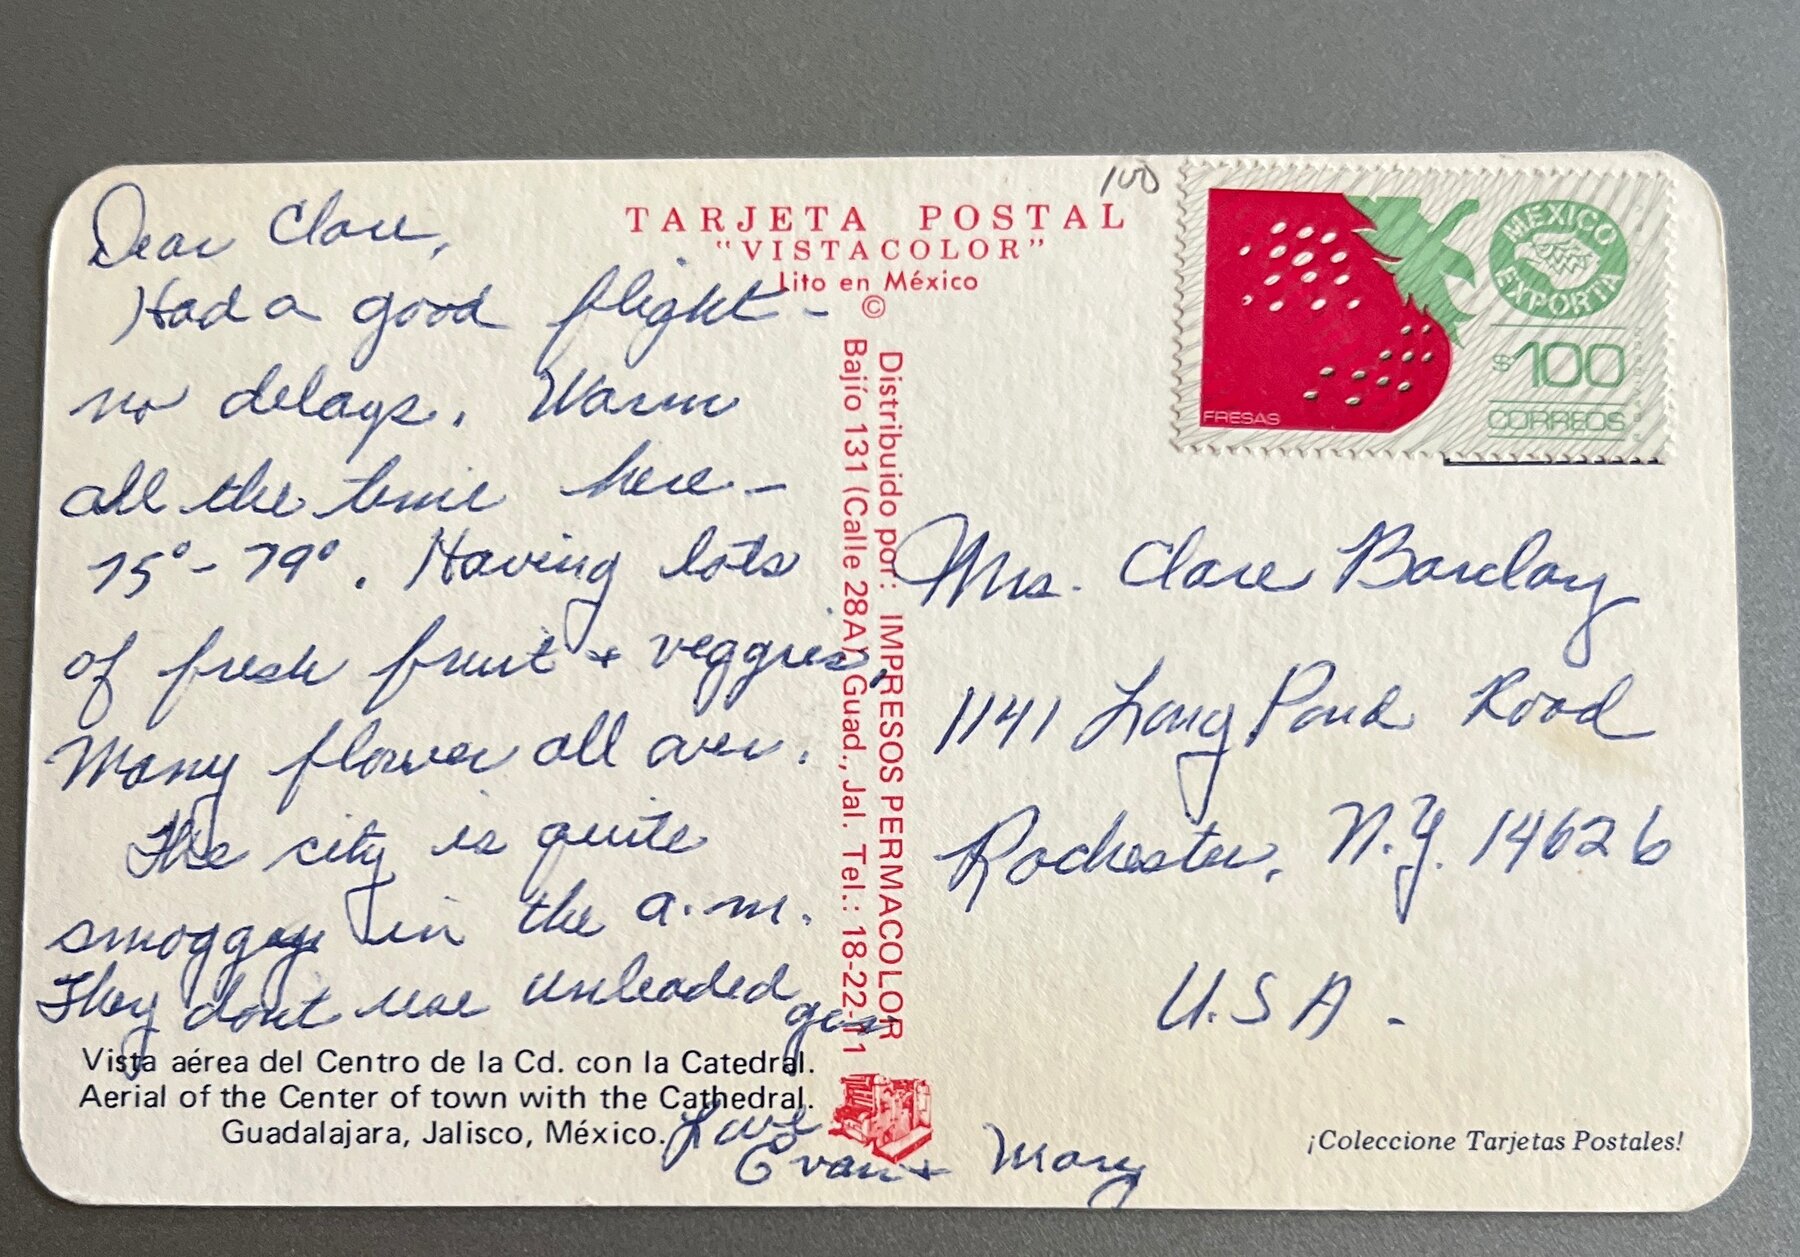 Dear Clare,
Had a good flight -
no delays. Warm
all the time here -
75° - 79°. Having lots
of fresh fruit + veggies.
Many flower all over.
The city is quite
smoggy in the a.m.
They dont use unleaded
gas
Love
Evan + Mary
Vista aérea del Centro de la Cd. con la Catedral.
Aerial of the Center of town with the Cathedral.
Guadalajara, Jalisco, México.
TARJETA POSTAL
"VISTACOLOR"
Lito en México
©
Distribuido por: IMPRESOS PERMACOLOR
Bajío 131 (Calle 28A) Guad., Jal. Tel.: 18-22-11
100
MEXICO
EXPORTA
$100
CORREOS
FRESAS
Mrs. Clare Barclay
1141 Long Pond Road
Rochester, N.Y. 14626
U.S.A.
¡Coleccione Tarjetas Postales!